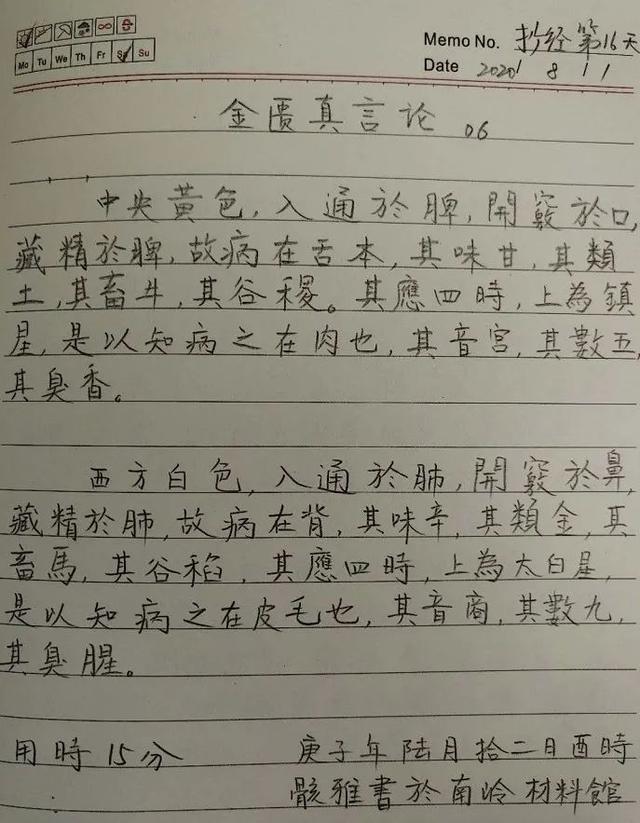 Memo No. 抄经第16天
Mo Tu We Th Fr Sa Su
Date 2020 / 8 / 1 /
金匮真言论 06
中央黃色,入通於脾,開竅於口,
藏精於脾,故病在舌本,其味甘,其類
土,其畜牛,其谷稷。其應四時,上為鎮
星,是以知病之在肉也,其音宮,其數五,
其臭香。
西方白色,入通於肺,開竅於鼻,
藏精於肺,故病在背,其味辛,其類金,其
畜馬,其谷稻,其應四時,上為太白星,
是以知病之在皮毛也,其音商,其數九,
其臭腥。
用時15分
庚子年陆月拾二日酉時
骸雅書於南岭材料館